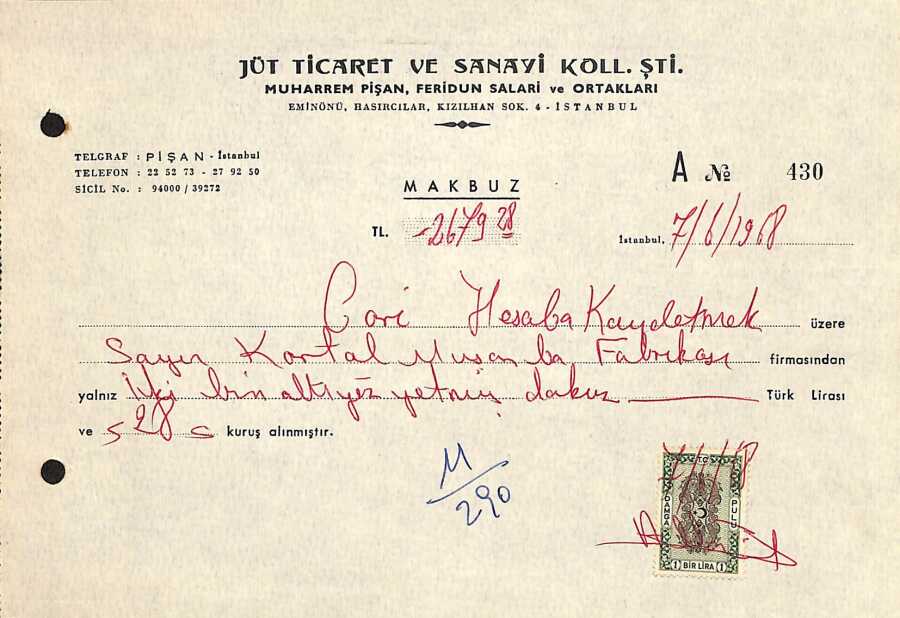 JÜT TİCARET VE SANAYİ KOLL. ŞTİ.
MUHARREM PİŞAN, FERİDUN SALARİ ve ORTAKLARI
EMİNÖNÜ, HASIRCILAR, KIZILHAN SOK. 4 - İSTANBUL
TELGRAF : PİŞAN - İstanbul
TELEFON : 22 52 73 - 27 92 50
SİCİL No. : 94000 / 39272
A № 430
MAKBUZ
TL. -2679 28
İstanbul, 7/6/1968
Cari Hesaba Kaydetmek üzere
Sayın Kartal Muşamba Fabrikası firmasından
yalnız İki bin altıyüz yetmiş dokuz Türk Lirası
ve 28 kuruş alınmıştır.
M/290
T.C.
DAMGA PULU
1 BİR LİRA 1